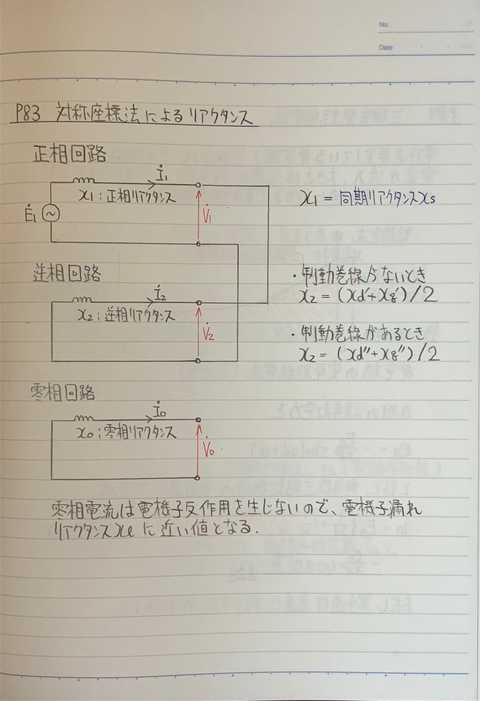 No.
Date
P83 対称座標法によるリアクタンス
正相回路
İ1
x1:正相リアクタンス
Ė1
V̇1
x1=同期リアクタンスxs
逆相回路
İ2
x2:逆相リアクタンス
V̇2
・制動巻線がないとき
x2=(xd'+xq')/2
・制動巻線があるとき
x2=(xd"+xq")/2
零相回路
İ0
x0:零相リアクタンス
V̇0
零相電流は電機子反作用を生じないので、電機子漏れ
リアクタンスxlに近い値となる.